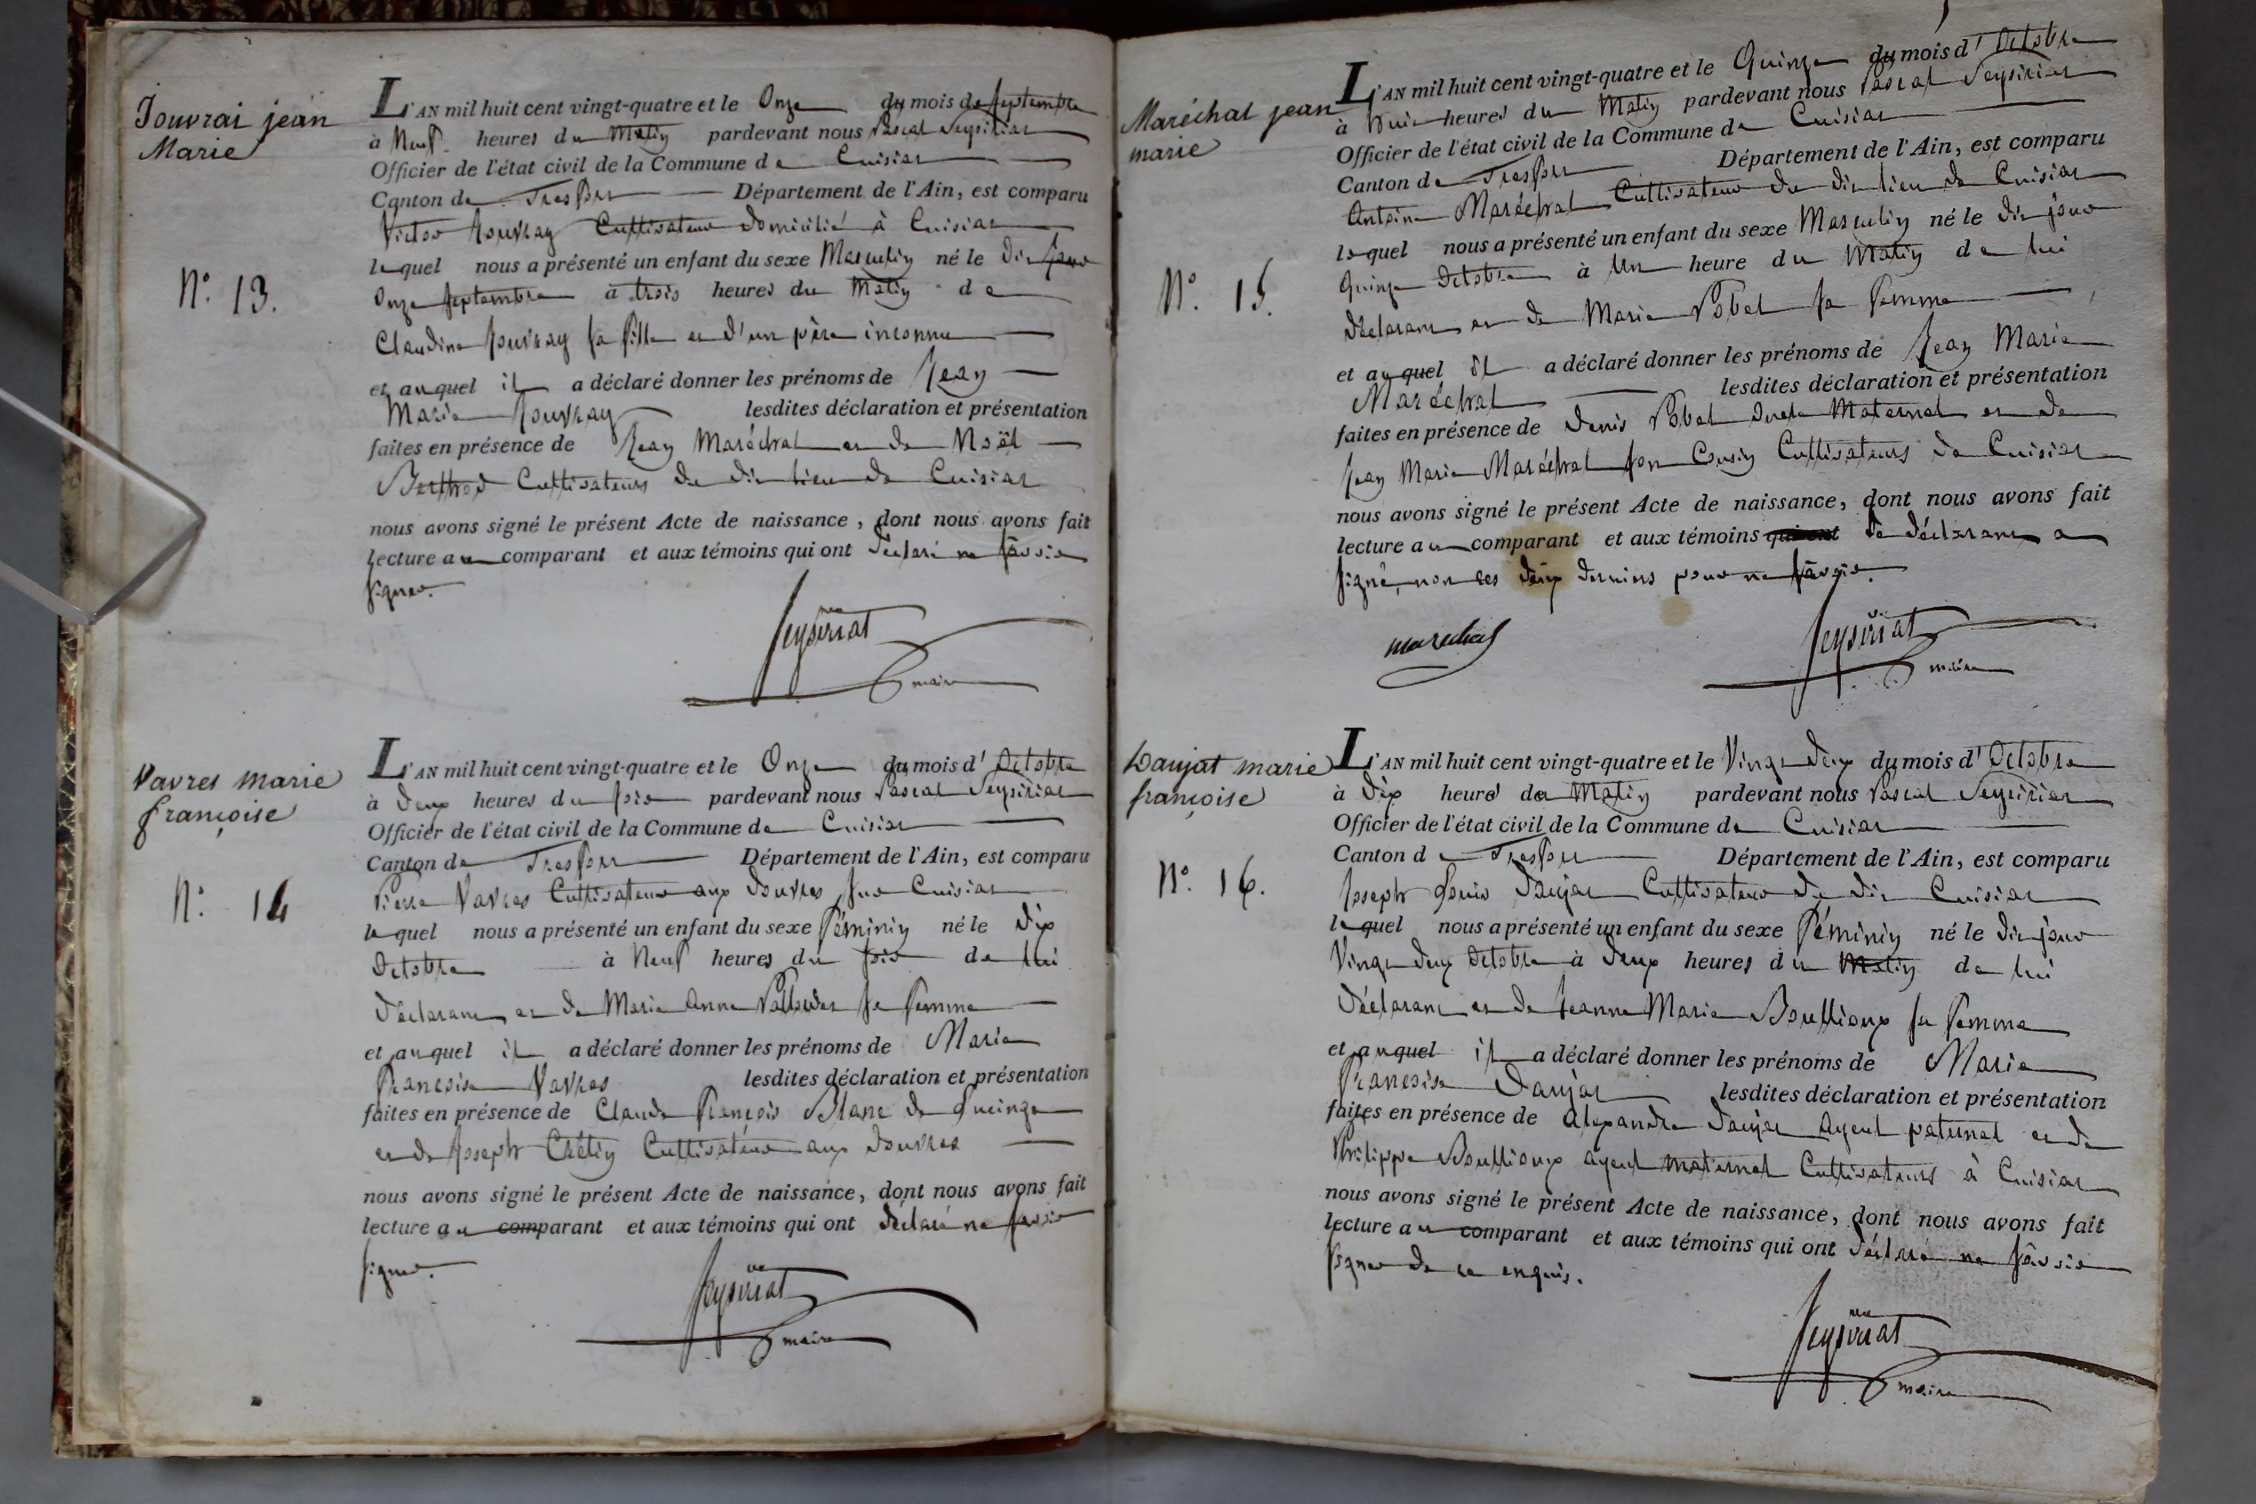 Jouvrai jean
Marie
N.° 13.
L'AN mil huit cent vingt-quatre et le Onze du mois de Septembre
à Neuf heures du Matin pardevant nous Pascal Seysiriat
Officier de l'état civil de la Commune de Cuisiat
Canton de Treffort Département de l'Ain, est comparu
Victor Jouvray Cultivateur domicilié à Cuisiat
lequel nous a présenté un enfant du sexe Masculin né le Dit jour
Onze Septembre à trois heures du Matin de
Claudine Jouvray sa fille et d'un père inconnu
et auquel il a déclaré donner les prénoms de Jean
Marie Jouvray lesdites déclaration et présentation
faites en présence de Jean Maréchal et de Noël
Berthod Cultivateurs du dit lieu de Cuisiat
nous avons signé le présent Acte de naissance, dont nous avons fait
lecture au comparant et aux témoins qui ont déclaré ne savoir
signer.
Seysiriat
maire
Vavres marie
françoise
N.° 14
L'AN mil huit cent vingt-quatre et le Onze du mois d'Octobre
à Deux heures du soir pardevant nous Pascal Seysiriat
Officier de l'état civil de la Commune de Cuisiat
Canton de Treffort Département de l'Ain, est comparu
Pierre Vavres Cultivateur aux Douvres sur Cuisiat
lequel nous a présenté un enfant du sexe féminin né le Dix
Octobre à Neuf heures du soir de lui
Déclarant et de Marie Anne sa femme
et auquel il a déclaré donner les prénoms de Marie
françoise Vavres lesdites déclaration et présentation
faites en présence de Claude françois Blanc de
et de Joseph Crétin Cultivateur aux Douvres
nous avons signé le présent Acte de naissance, dont nous avons fait
lecture au comparant et aux témoins qui ont déclaré ne savoir
signer.
Seysiriat
maire
Maréchal jean
marie
N.° 15.
L'AN mil huit cent vingt-quatre et le Quinze du mois d'Octobre
à huit heures du Matin pardevant nous Pascal Seysiriat
Officier de l'état civil de la Commune de Cuisiat
Canton de Treffort Département de l'Ain, est comparu
Antoine Maréchal Cultivateur du dit lieu de Cuisiat
lequel nous a présenté un enfant du sexe Masculin né le Dit jour
Quinze Octobre à Un heure du Matin de lui
Déclarant et de Marie Pobel sa femme
et auquel il a déclaré donner les prénoms de Jean Marie
Maréchal lesdites déclaration et présentation
faites en présence de Denis Pobel Oncle Maternel et de
Jean Marie Maréchal son Cousin Cultivateurs de Cuisiat
nous avons signé le présent Acte de naissance, dont nous avons fait
lecture au comparant et aux témoins qui ont le déclarant a
signé, non ces deux derniers pour ne savoir.
marechal
Seysiriat
maire
Daujat marie
françoise
N.° 16.
L'AN mil huit cent vingt-quatre et le Vingt deux du mois d'Octobre
à Dix heures du Matin pardevant nous Pascal Seysiriat
Officier de l'état civil de la Commune de Cuisiat
Canton de Treffort Département de l'Ain, est comparu
Joseph Louis Daujat Cultivateur du dit Cuisiat
lequel nous a présenté un enfant du sexe féminin né le Dit jour
Vingt deux Octobre à Deux heures du Matin de lui
Déclarant et de Jeanne Marie Boullioux sa femme
et auquel il a déclaré donner les prénoms de Marie
françoise Daujat lesdites déclaration et présentation
faites en présence de Alexandre Daujat Ayeul paternel et de
Philippe Boullioux ayeul maternel Cultivateurs à Cuisiat
nous avons signé le présent Acte de naissance, dont nous avons fait
lecture au comparant et aux témoins qui ont déclaré ne savoir
signer de ce enquis.
Seysiriat
maire